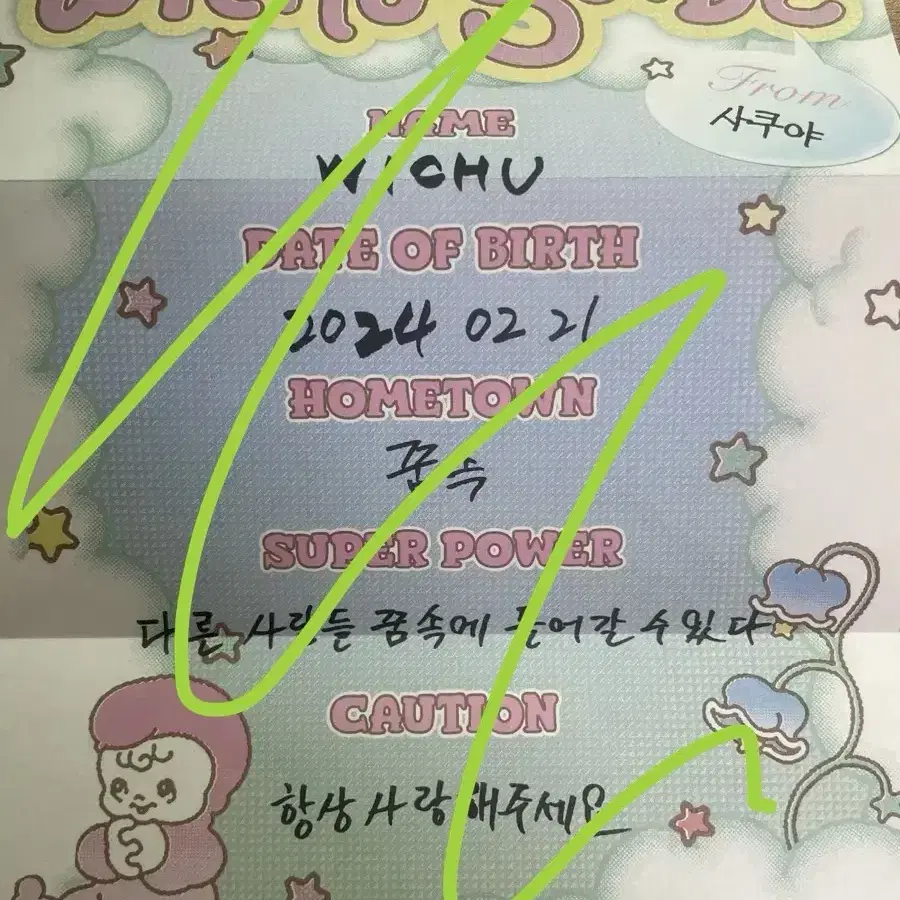 From
사쿠야
NAME
WICHU
DATE OF BIRTH
2024 02 21
HOMETOWN
꿈속
SUPER POWER
다른 사람들 꿈속에 들어갈 수 있다
CAUTION
항상 사랑해주세요